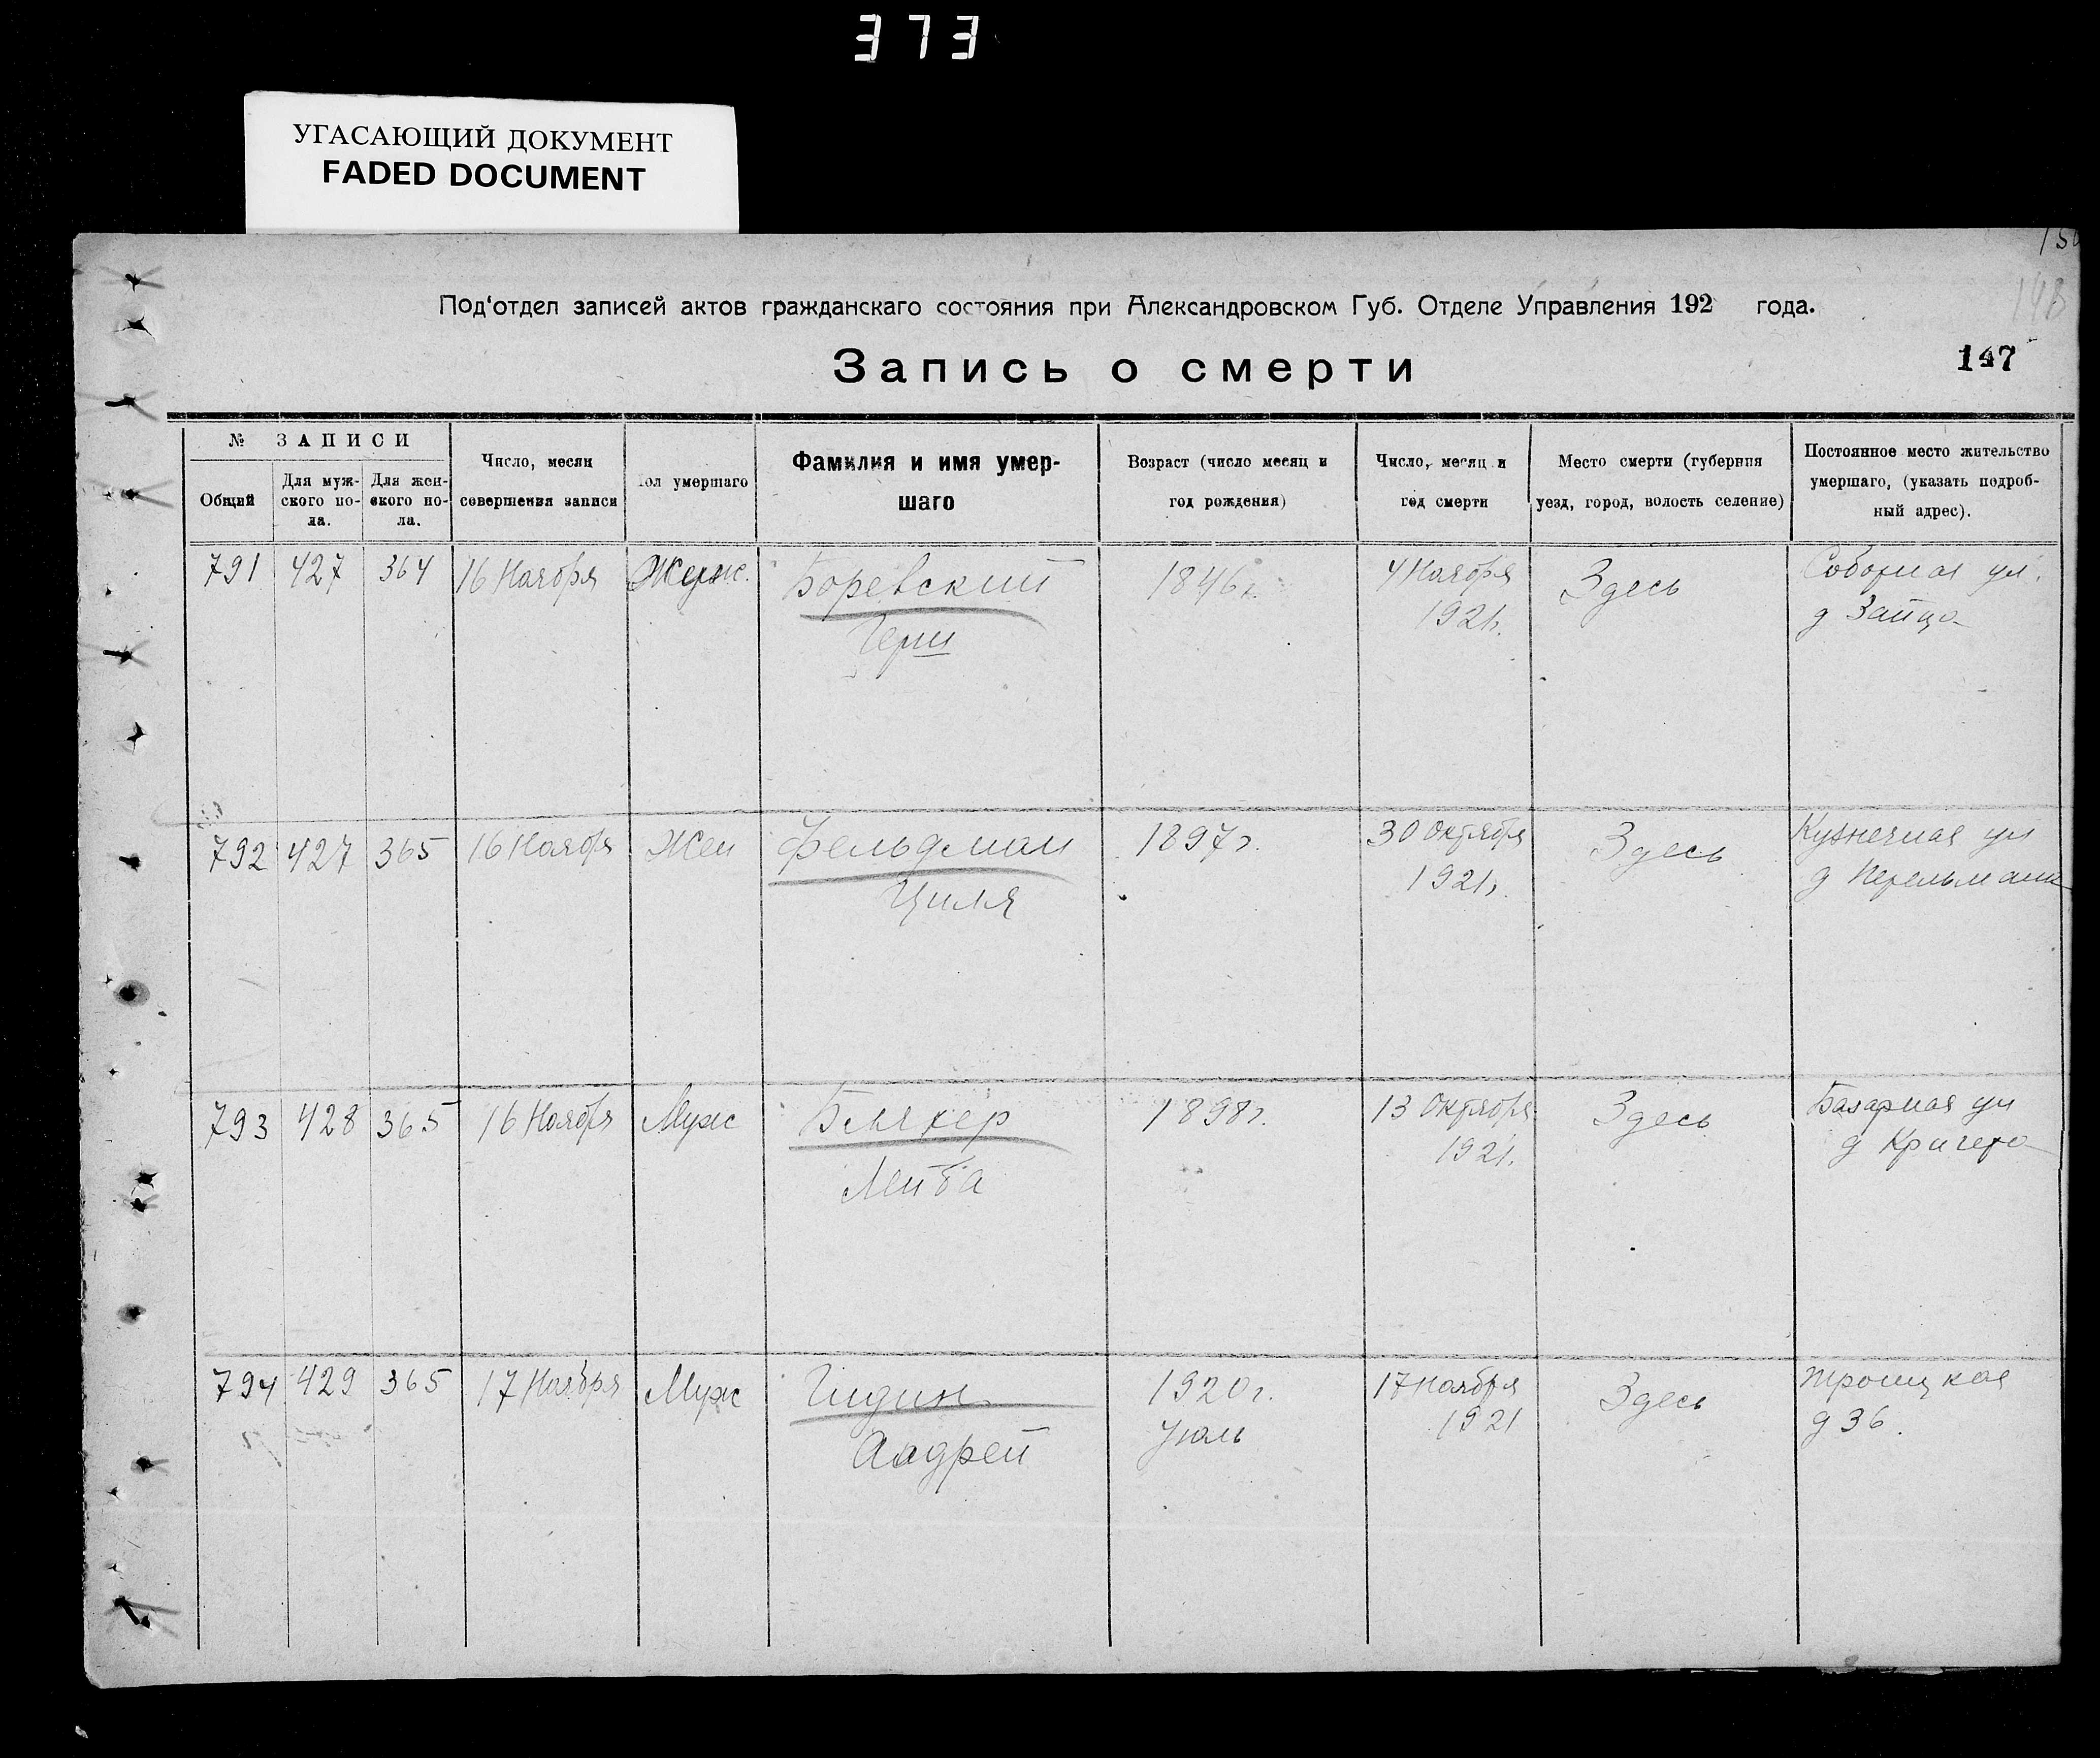 373
УГАСАЮЩИЙ ДОКУМЕНТ
FADED DOCUMENT
148
Под'отдел записей актов гражданскаго состояния при Александровском Губ. Отделе Управления 192 года.
Запись о смерти
147
№ ЗАПИСИ
Общий
Для муж-
ского по-
ла.
Для жен-
ского по-
ла.
Число, месяц
совершения записи
Пол умершаго
Фамилия и имя умер-
шаго
Возраст (число месяц и
год рождения)
Число, месяц и
год смерти
Место смерти (губерния
уезд, город, волость селение)
Постоянное место жительство
умершаго, (указать подроб-
ный адрес).
791 427 364 16 Ноября Муж. Боревский 1846г. 4 Ноября Здесь Соборная ул.
Герш 1921г. д Зайца
792 427 365 16 Ноября Жен Фельдман 1897г. 30 Октября Здесь Кузнечная ул
Циля 1921г. д Перельмана
793 428 365 16 Ноября Муж Бляхер 1898г. 13 Октября Здесь Базарная ул
Лейба 1921. д Кригера
794 429 365 17 Ноября Муж 1920г. 17 Ноября Здесь Троицкая
Андрей Июль 1921 д 36.